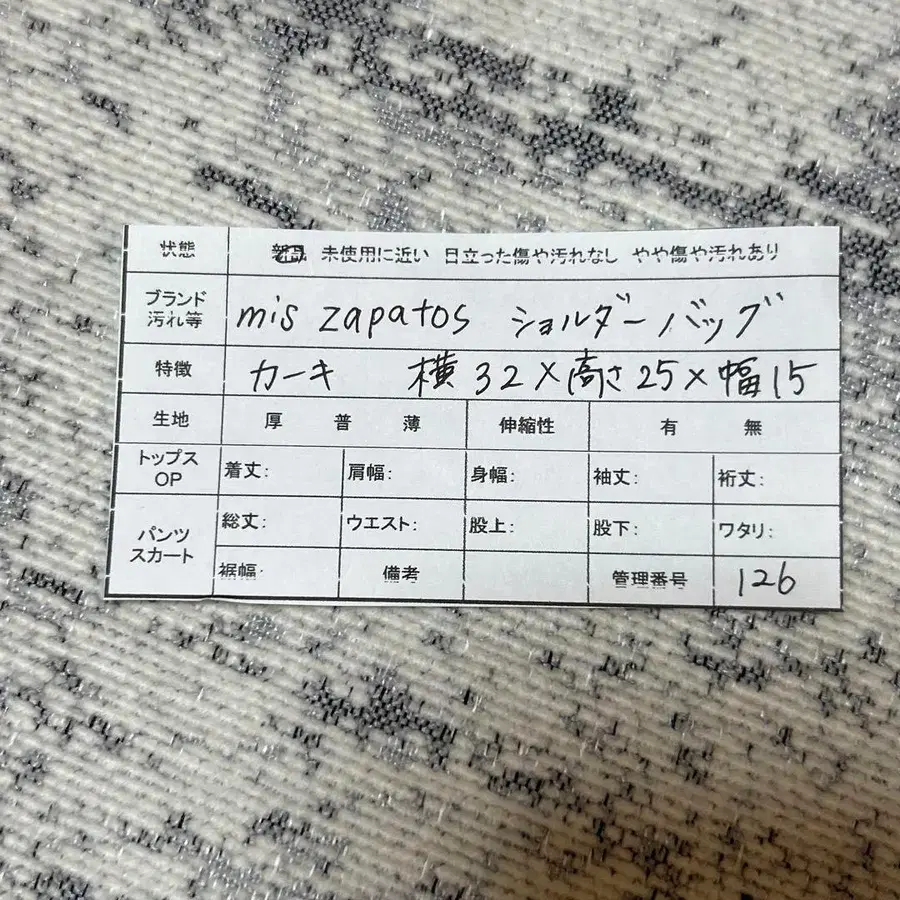 状態 新品 未使用に近い 目立った傷や汚れなし やや傷や汚れあり
ブランド
汚れ等
mis zapatos ショルダーバッグ
特徴 カーキ 横32×高さ25×幅15
生地 厚 普 薄 伸縮性 有 無
トップス
OP
着丈: 肩幅: 身幅: 袖丈: 裄丈:
パンツ
スカート
総丈: ウエスト: 股上: 股下: ワタリ:
裾幅: 備考 管理番号 126